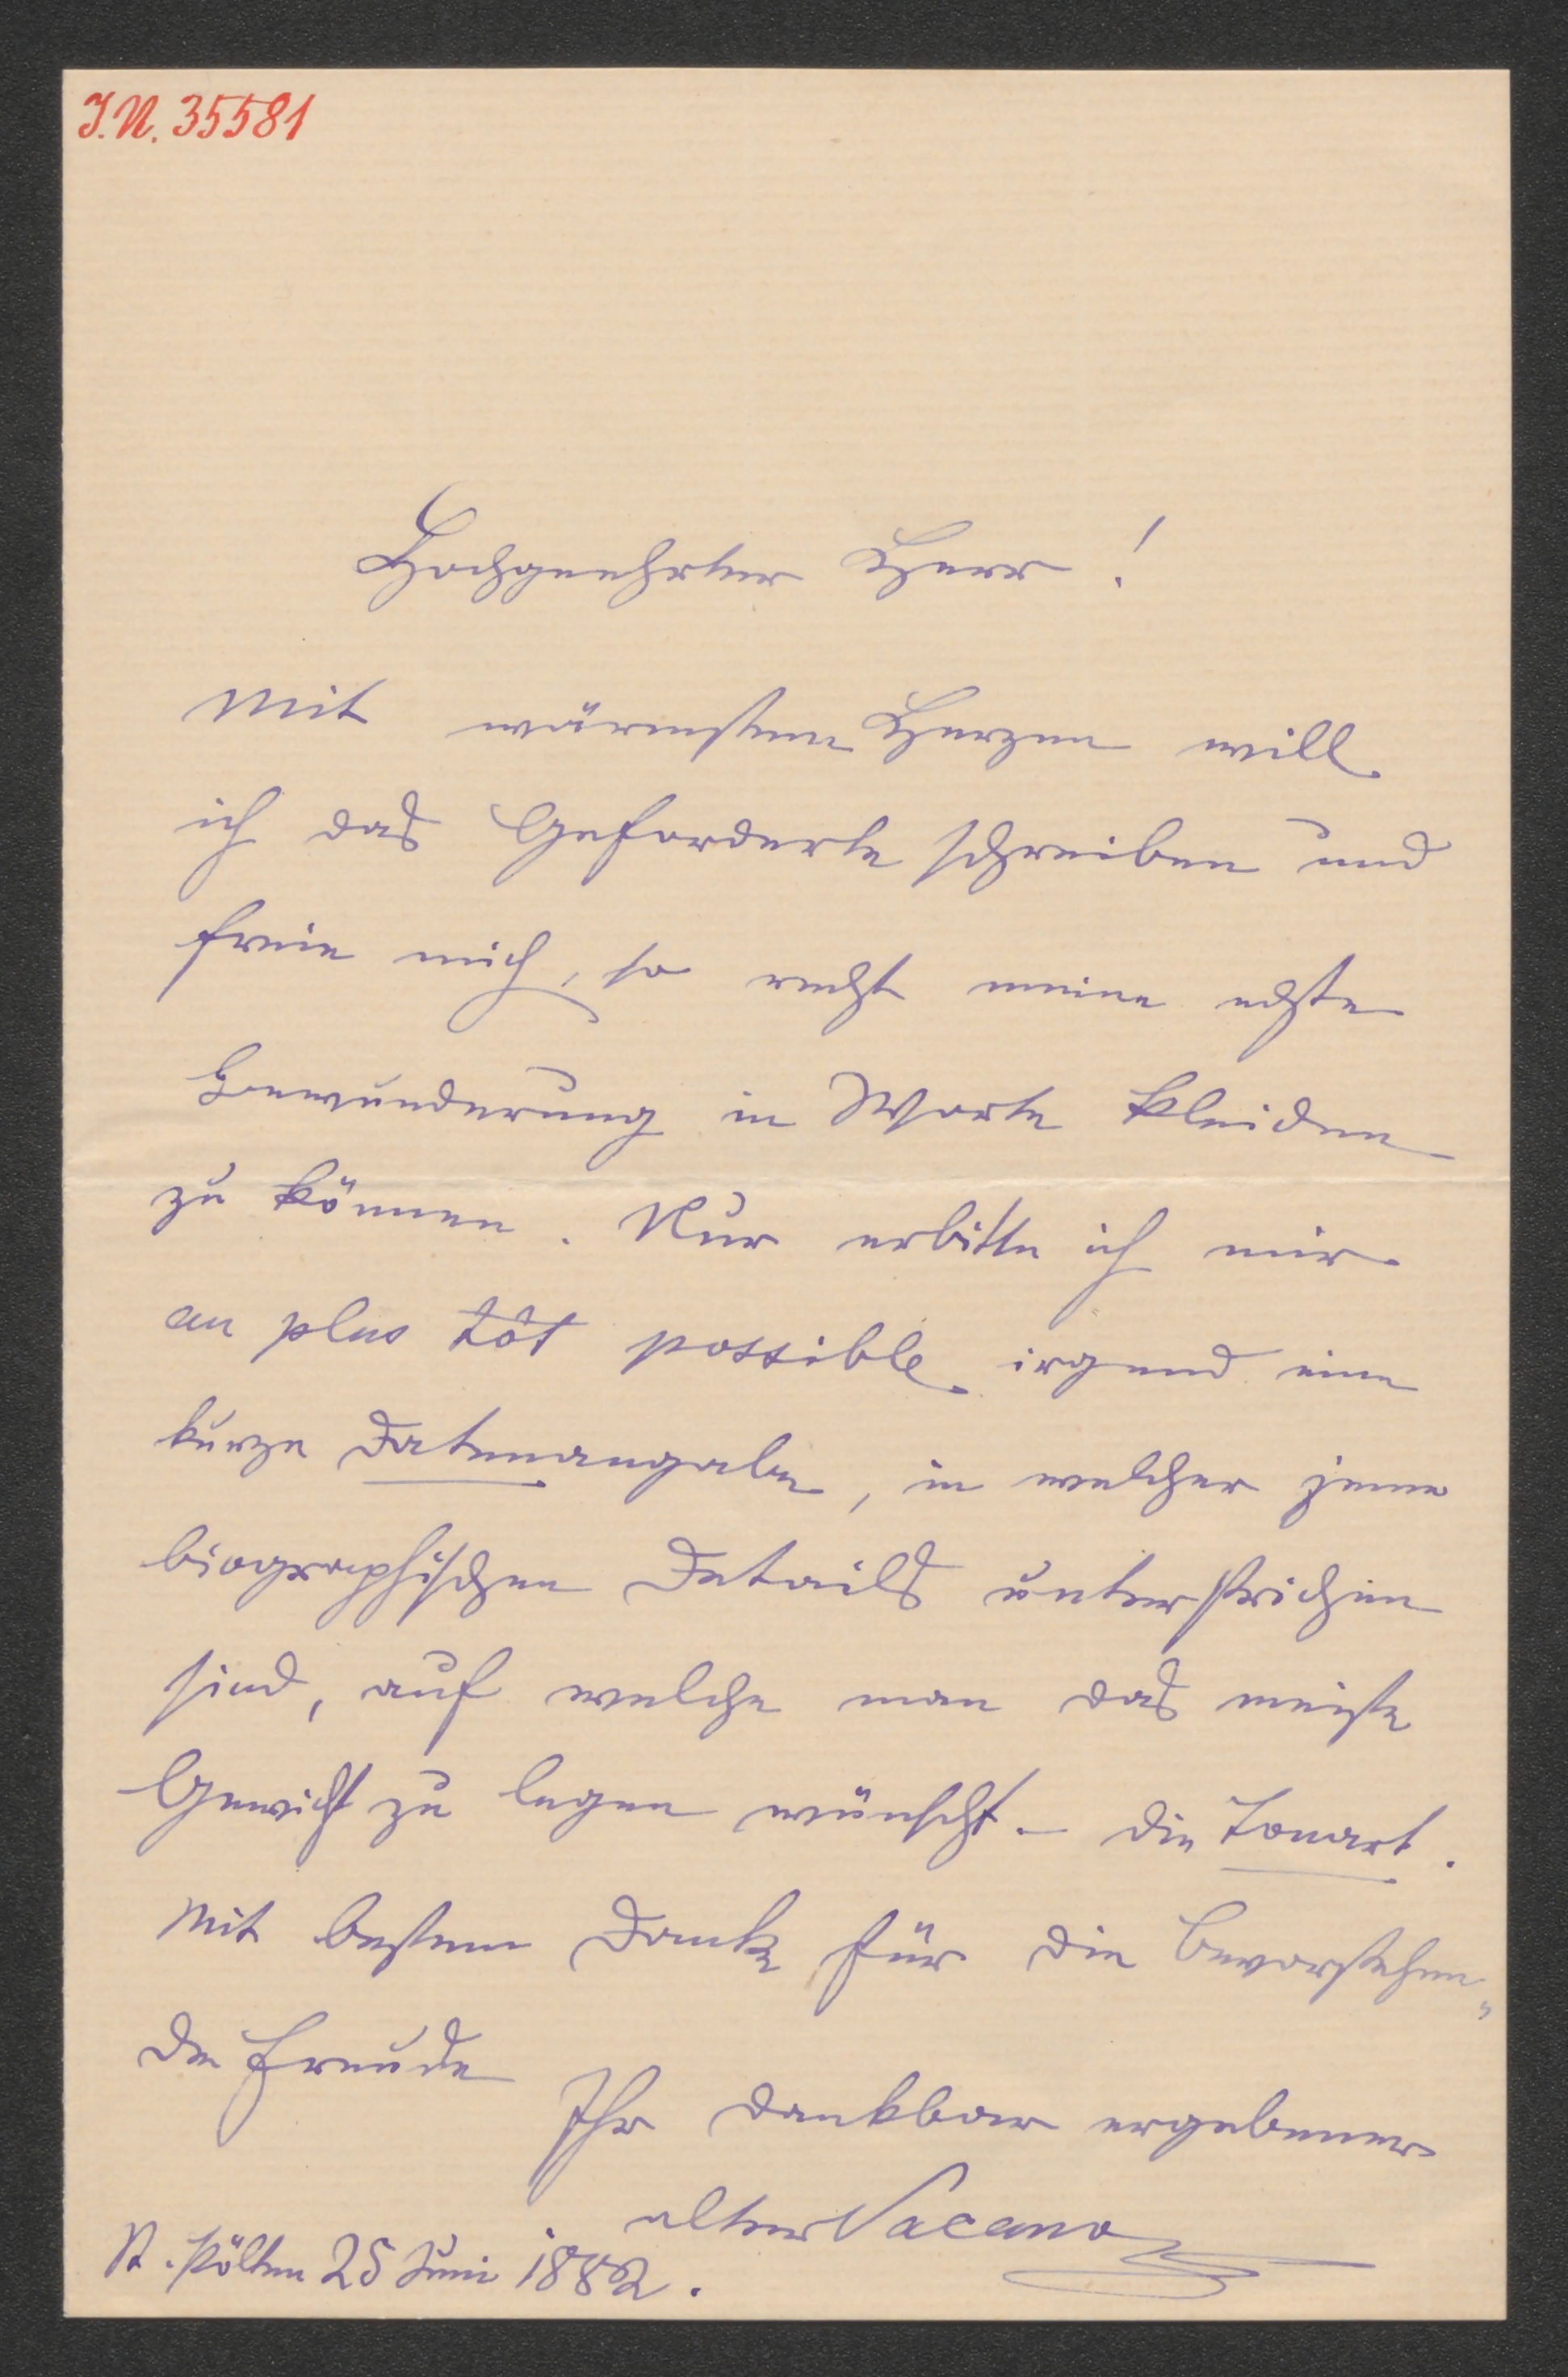 I.N. 35581
Hochgeehrter Herr!
Mit wärmstem Herzen will
ich das Geforderte schreiben und
freue mich, so recht meine echte
Bewunderung in Worte kleiden
zu können. Nur erbitte ich mir
au plus tôt possible irgend eine
kurze Datenangabe, in welcher jene
biographischen Details unterstrichen
sind, auf welche man das meiste
Gewicht zu legen wünscht. – die Tonart.
Mit bestem Dank für die bevorstehen„
de Freude
Ihr dankbar ergebener
alter Vacano
St. Pölten 25 Juni 1882.